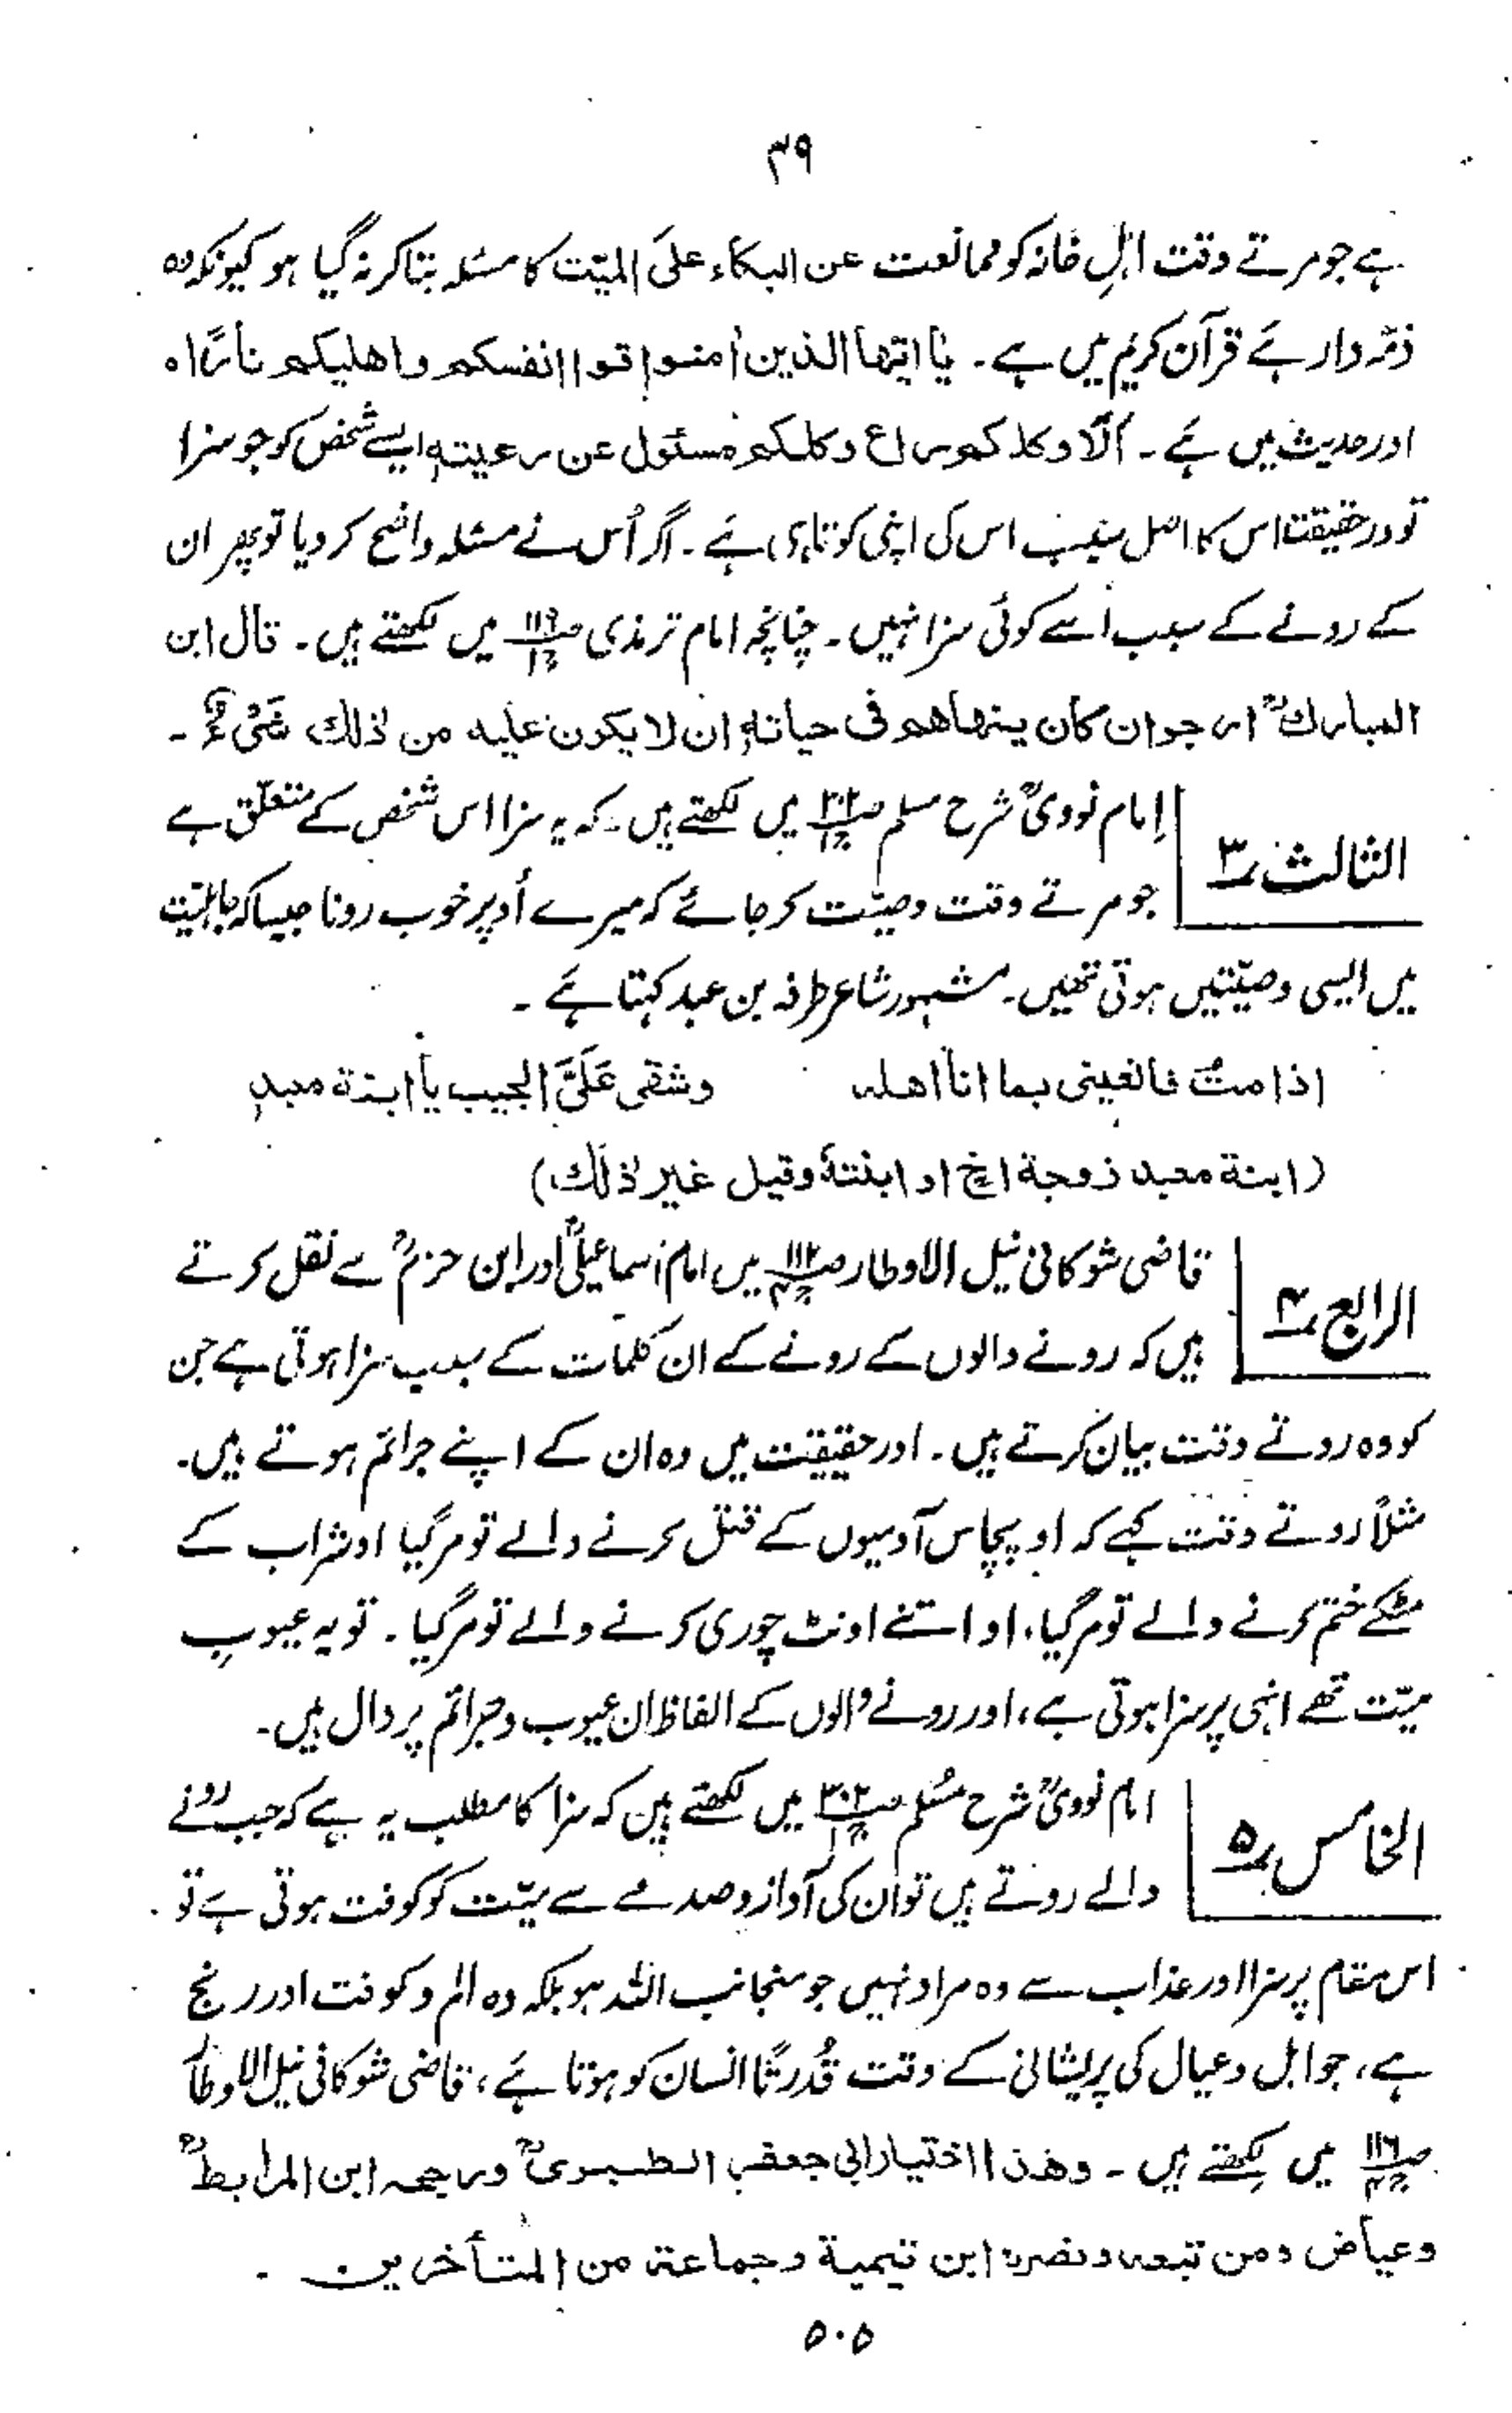 ۳۹
ہے جو مرتے وقت اہلِ خانہ کو ممانعت عن البکاء علیَ المیّت کا مسئلہ بتا کر نہ گیا ہو کیونکہ وہ
ذمّہ دار ہے قرآن کریم میں ہے ۔ یٰا ایّها الذین اٰمنوا قوا انفسکم و اهلیکم نارًا ہ
اور حدیث میں ہے ۔ اَلَا وکلکم راع وکلکم مسئول عن رعیتهٖ ایسے شخص کو جو سزا
تو درحقیقت اس کا اصل سبب اس کی اپنی کوتاہی ہے ۔ اگر اُس نے مسئلہ واضح کر دیا تو پھر ان
کے رونے کے سبب اُسے کوئی سزا نہیں ۔ چنانچہ امام ترمذی ص۱۱۹ ج۱ میں لکھتے ہیں ۔ قال ابن
المبارکؒ ارجو ان کان ینهاهم فی حیاتهٖ ان لا یکون علیه من ذٰلک شَیْءٌ ۔
الثالث ۳
اِمام نوویؒ شرح مسلم ص۳۰۲ ج۱ میں لکھتے ہیں ۔ کہ یہ سزا اس شخص کے متعلّق ہے
جو مرتے وقت وصیّت کر جائے کہ میرے اُوپر خوب رونا جیسا کہ جاہلیّت
میں ایسی وصیّتیں ہوتی تھیں ۔ مشہور شاعر طرفہ بن عبد کہتا ہے ۔
اذا متُ فانعینی بما انا اهله وشقی عَلَیَّ الجیب یا ابنة معبدٖ
(ابنة معبد زوجة اخ او ابنتهٗ وقیل غیر ذٰلک)
الرابع ۴
قاضی شوکانی نیل الاوطار ص۱۱۲ ج۴ میں امام اسماعیلیؒ اور ابن حزمؒ سے نقل کرتے
ہیں کہ رونے والوں کے رونے کے ان کلمات کے سبب سزا ہوتی ہے جن
کو وہ روتے وقت بیان کرتے ہیں ۔ اور حقیقت میں وہ ان کے اپنے جرائم ہوتے ہیں ۔
مثلاً روتے وقت کہے کہ او پچاس آدمیوں کے قتل کرنے والے تو مر گیا او شراب کے
مٹکے ختم کرنے والے تو مر گیا، او اتنے اونٹ چوری کرنے والے تو مر گیا ۔ تو یہ عیوبِ
میّت تھے انہی پر سزا ہوتی ہے، اور رونے والوں کے الفاظ ان عیوب و جرائم پر دال ہیں ۔
الخامس ۵
امام نوویؒ شرح مُسلم ص۳۰۲ ج۱ میں لکھتے ہیں کہ سزا کا مطلب یہ ہے کہ جب رونے
والے روتے ہیں تو ان کی آواز و صدمے سے میّت کو کوفت ہوتی ہے تو
اس مقام پر سزا اور عذاب سے وہ مراد نہیں جو منجانب اللہ ہو بلکہ وہ الم و کوفت اور رنج
ہے، جو اہل و عیال کی پریشانی کے وقت قُدرتًا انسان کو ہوتا ہے، قاضی شوکانی نیل الاوطار
ص۱۱۶ ج۴ میں لکھتے ہیں ۔ وهذا اختیار ابی جعفر الطبریؒ ورجحه ابن المرابطؒ
وعیاض ومن تبعه ونصره ابن تیمیة وجماعة من المتأخرین ۔
۵۰۵